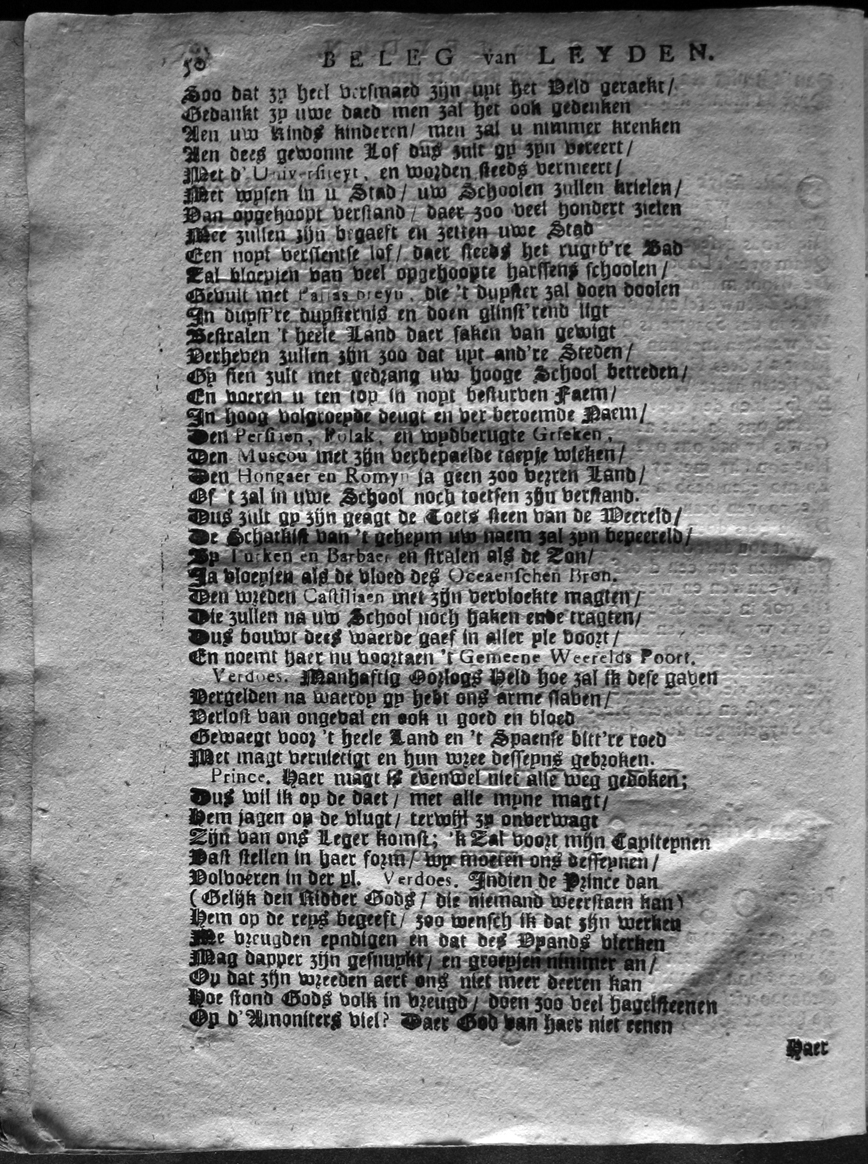 50 BELEG van LEYDEN.
Soo dat zy heel versmaed zijn uyt het Veld geraekt/
Gedankt zy uwe daed men zal het ook gedenken
Aen uw Kinds kinderen/ men zal u nimmer krenken
Aen dees gewonne Lof dus zult gy zyn vereert/
Met d'Universiteyt, en worden steeds vermeert/
Met wysen in u Stad/ uw Schoolen zullen krielen/
Van opgehoopt verstand/ daer zoo veel hondert zielen
Mee zullen zijn begaeft en zetten uwe Stad
Een noyt verslentse lof/ daer steeds het rugtb're Bad
Zal vloeyjen van veel opgehoopte harssens schoolen/
Gevult met Pallas breyn, die 't duyster zal doen doolen
In duyst're duysternis en doen glinst'rend ligt
Bestralen 't heele Land daer saken van gewigt
Verheven zullen zijn zoo dat uyt and're Steden/
Gy sien zult met gedrang uw hooge School betreden/
En voeren u ten top in noyt besturven Faem/
In hoog volgroeyde deugt en ver beroemde Naem/
Den Persiien, Polak, en wydberugte Grieken,
Den Muscou met zijn verdepaelde taeyse wieken/
Den Hongaer en Romyn ja geen zoo verren Land/
Of 't zal in uwe School noch toetsen zijn verstand.
Dus zult gy zijn geagt de Toets steen van de Weereld/
De Schatkist van 't geheym uw naem zal zyn bepeereld/
By Turken en Barbaer en stralen als de Zon/
Ja vloeyjen als de vloed des Oceaenschen Bron.
Den wreden Castiliaen met zijn vervloekte magten/
Die zullen na uw School noch haken ende tragten/
Dus bouwt dees waerde gaef in aller yle voort/
En noemt haer nu voortaen 't Gemeene Weerelds Poort.
Verdoes. Manhaftig Oorlogs Held hoe zal ik dese gaven
Vergelden na waerdy gy hebt ons arme slaven/
Verlost van ongeval en ook u goed en bloed
Gewaegt voor 't heele Land en 't Spaense bitt're roed
Met magt vernietigt en hun wree desseyns gebroken.
Prince. Haer magt is evenwel niet alle weg gedoken;
Dus wil ik op de daet/ met alle myne magt/
Hem jagen op de vlugt/ terwijl zy onverwagt
Zijn van ons Leger komst; 'k Zal voort mijn Capiteynen
Vast stellen in haer form/ wy moeten ons desseynen/
Volvoeren in der yl. Verdoes. Indien de Prince dan
(Gelijk den Ridder Gods/ die niemand weerstaen kan)
Hem op de reys begeeft/ zoo wensch ik dat zijn werken
Me vreugden eyndigen en dat des Vyands vlerken
Mag dapper zijn gesnuykt/ en groeyjen nimmer an/
Op dat zijn wreeden aert ons niet meer deeren kan
Hoe stond Gods volk in vreugd/ doen zoo veel hagelsteenen
Op d'Amoniters viel? Daer God van haer niet eenen
Haer